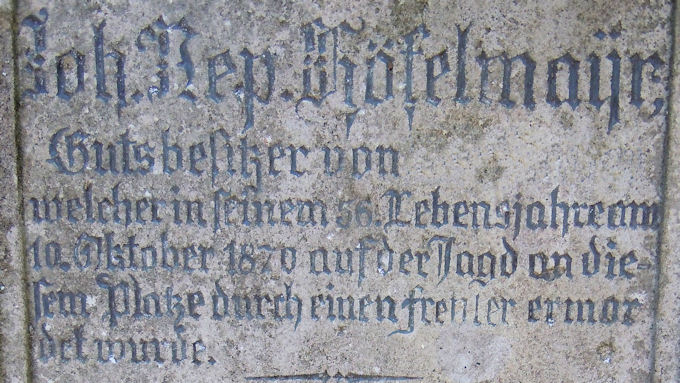 Joh. Nep. Höfelmaÿr,
Gutsbesitzer von
welcher in seinem 56. Lebensjahre am
10. Oktober 1870 auf der Jagd an die-
sem Platze durch einen Frevler ermor
det wurde.